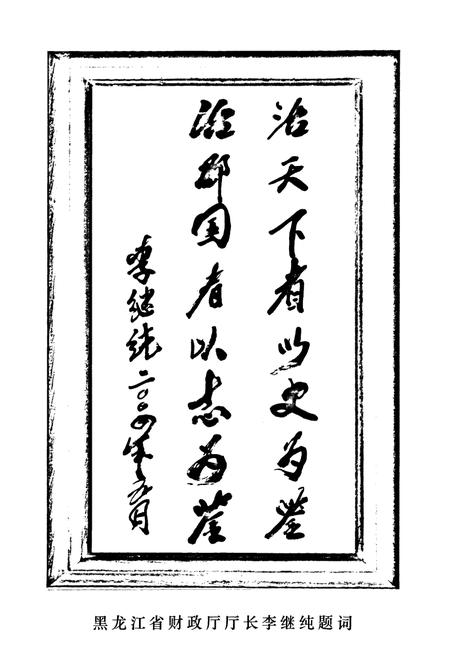 治天下者以史为鉴
治郡国者以志为鉴
李继纯二〇〇四年五月
黑龙江省财政厅厅长李继纯题词